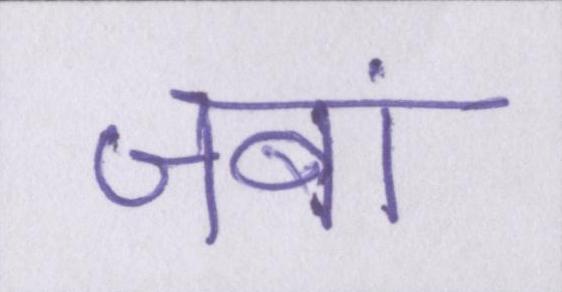 जबां